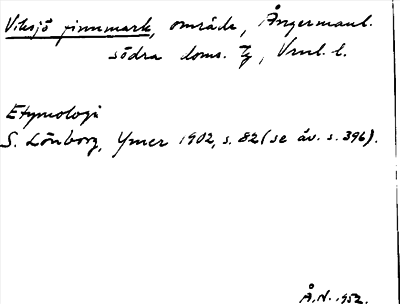 Viksjö finnmark, område, Ångermanl.
södra doms. tg, Vrml. l.
Etymologi
S. Lönborg, Ymer 1902, s. 82 (se äv. s. 396).
Å.N. 1952.